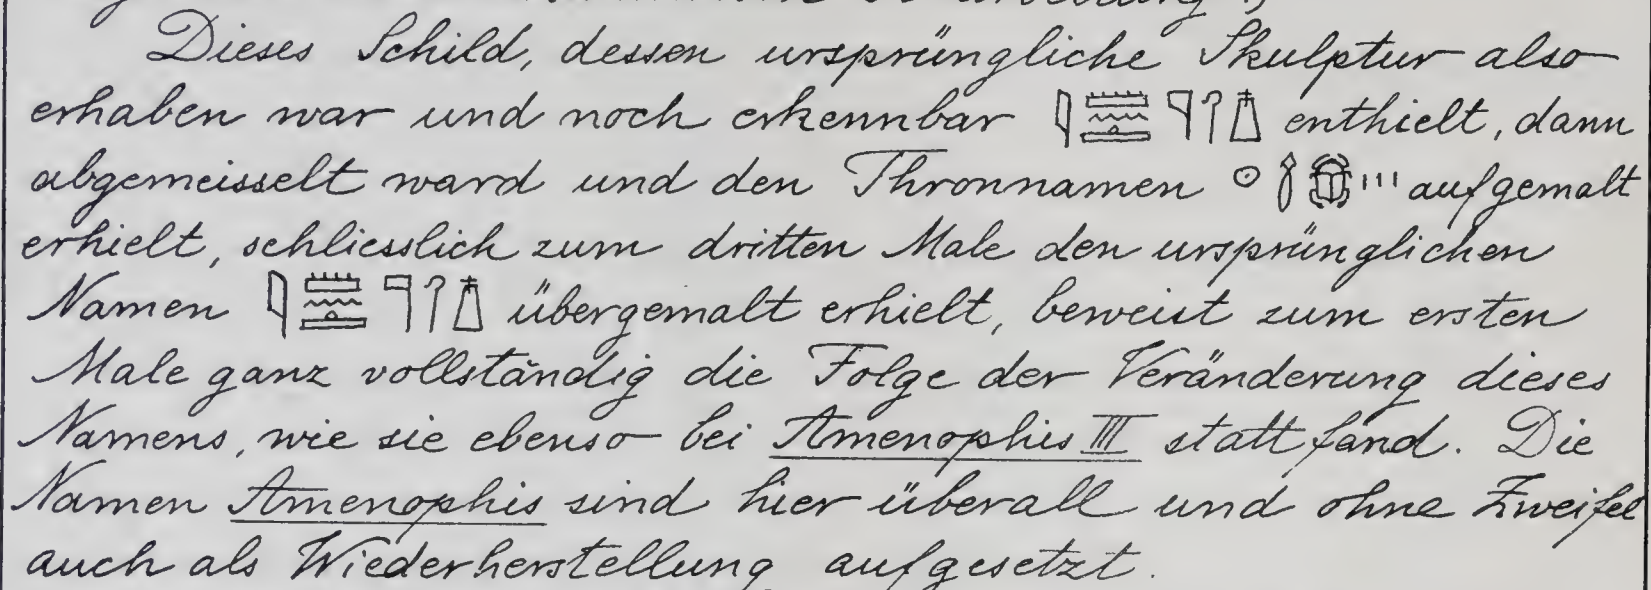 Dieses Schild, dessen ursprüngliche Skulptur also
erhaben war und noch erkennbar 𓇋𓏠𓈖𓊵𓊹𓋾𓉺 enthielt, dann
abgemeisselt ward und den Thronnamen 𓇳𓉼𓆣𓏥 aufgemalt
erhielt, schliesslich zum dritten Male den ursprünglichen
Namen 𓇋𓏠𓈖𓊵𓊹𓋾𓉺 übergemalt erhielt, beweist zum ersten
Male ganz vollständig die Folge der Veränderung dieses
Namens, wie sie ebenso bei Amenophis III statt fand. Die
Namen Amenophis sind hier überall und ohne Zweifel
auch als Wiederherstellung aufgesetzt.